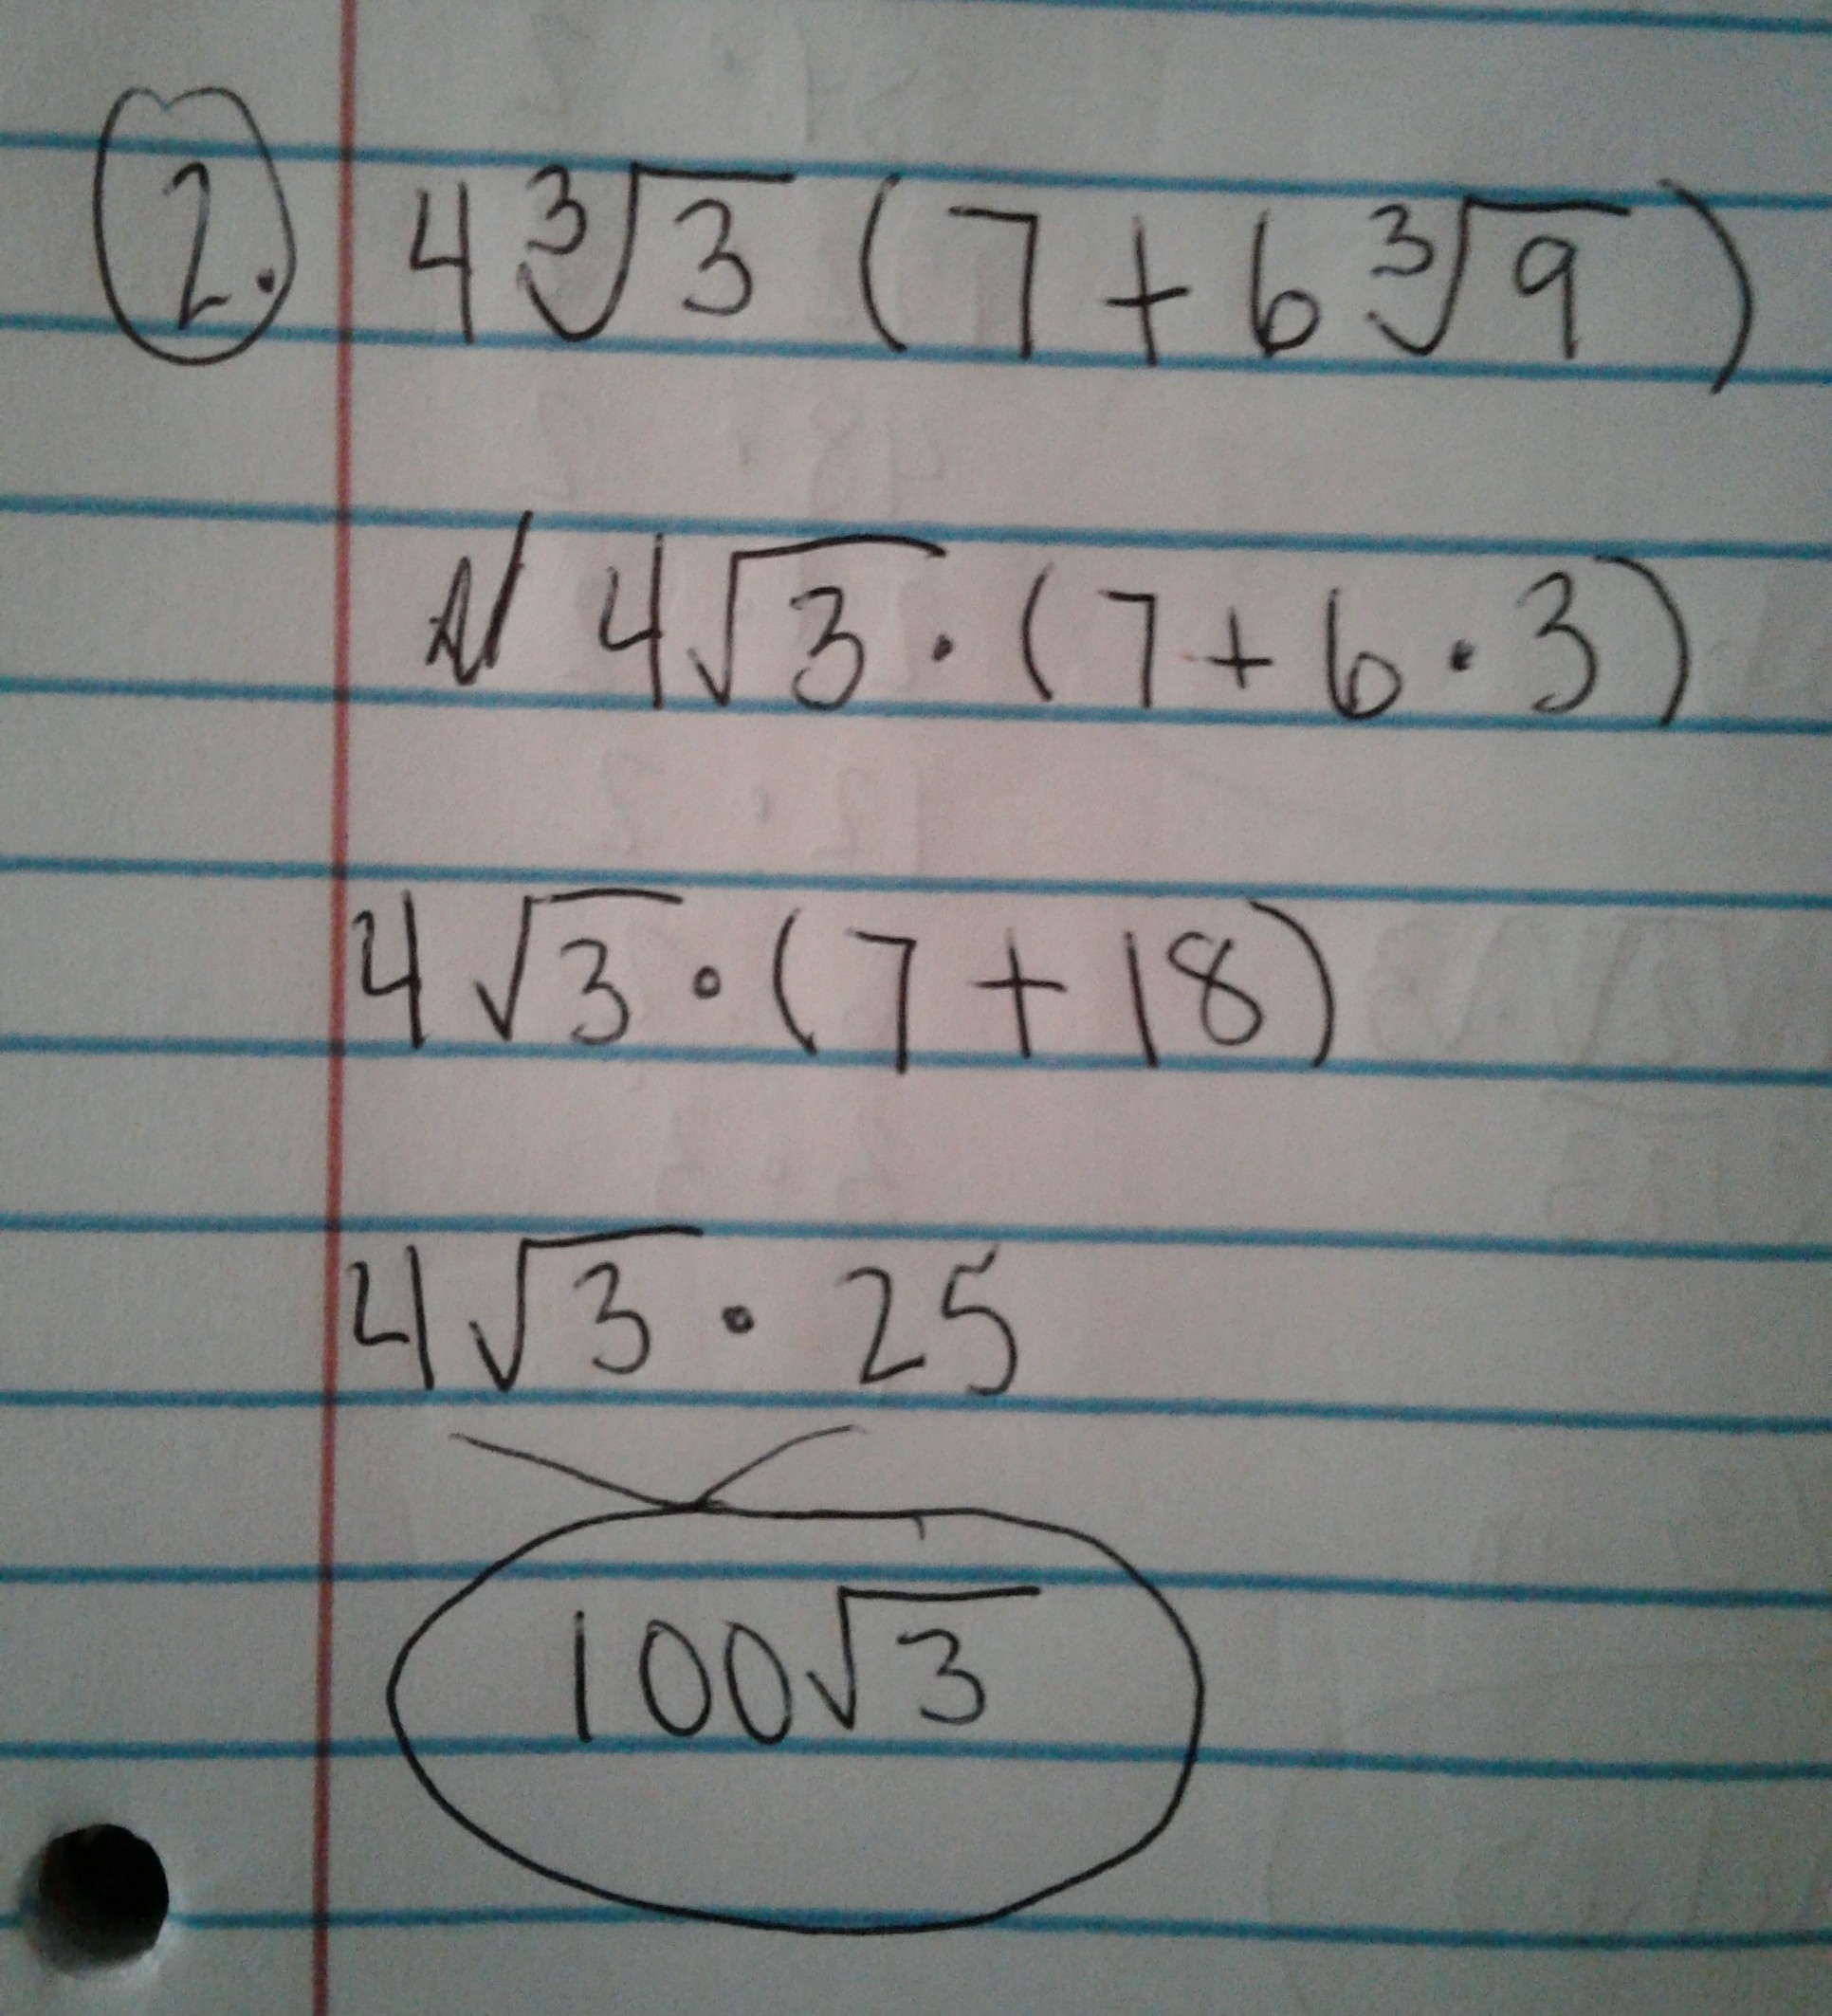 2. 4∛3 (7 + 6∛9)
4√3 · (7 + 6 · 3)
4√3 · (7 + 18)
4√3 · 25
100√3